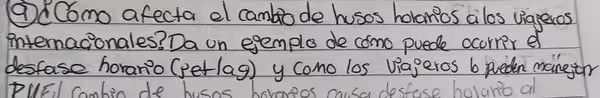 9) ¿Cómo afecta el cambio de husos horarios a los viajeros
internacionales? Da un ejemplo de cómo puede ocurrir el
desfase horario (jet lag) y como los viajeros lo pueden manejar
El cambio de husos horarios causa desfase horario al